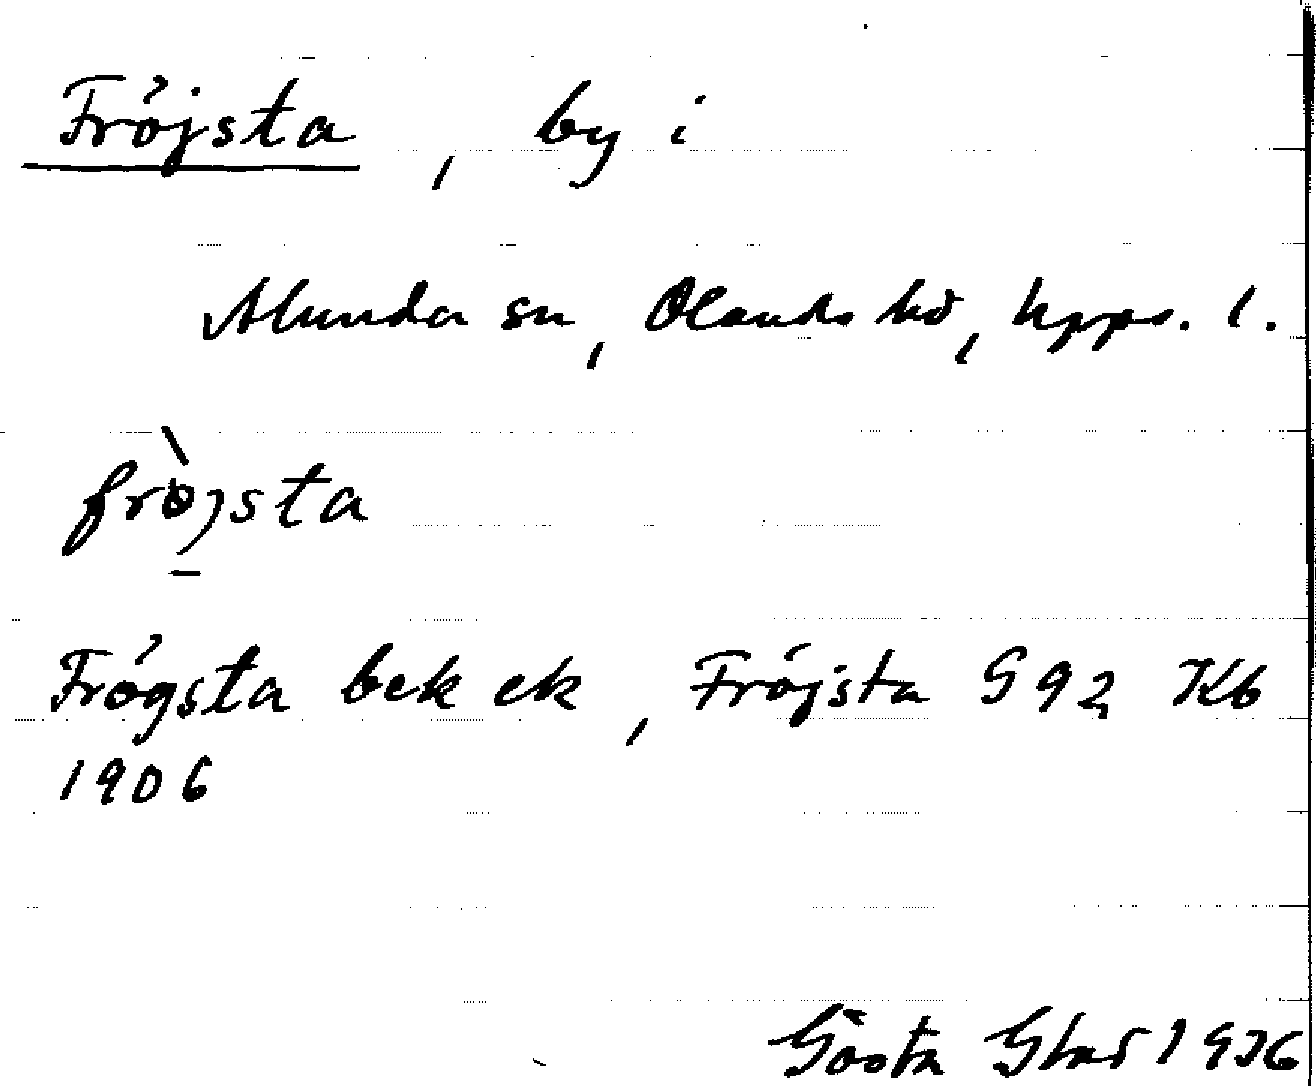 Fröjsta, by i
Alunda sn, Olands hd, Upps. l.
frö̀jsta
Frögsta bek ek, Fröjsta G92 Kb
1906
Gösta 1936